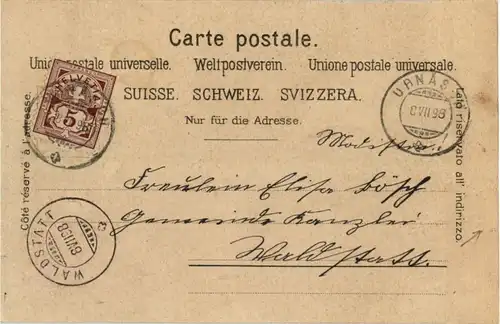 Carte postale.
Union postale universelle. Weltpostverein. Unione postale universale.
SUISSE. SCHWEIZ. SVIZZERA.
Nur für die Adresse.
Côté réservé à l'adresse.
Lato riservato all' indirizzo
HELVETIA
5
URNÄSCH
8 VII 98
Modistin.
Fräulein Elisa Bösch
Gemeinde Kanzlei
Waldstatt.
WALDSTATT
8 VII 98